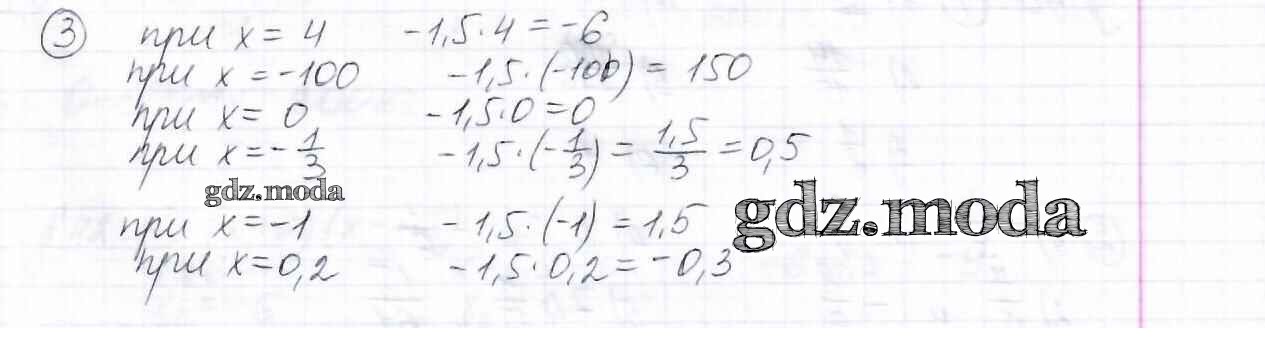 3 при x = 4 -1,5·4 = -6
при x = -100 -1,5·(-100) = 150
при x = 0 -1,5·0 = 0
при x = -1/3 -1,5·(-1/3) = 1,5/3 = 0,5
gdz.moda
при x = -1 -1,5·(-1) = 1,5
gdz.moda
при x = 0,2 -1,5·0,2 = -0,3